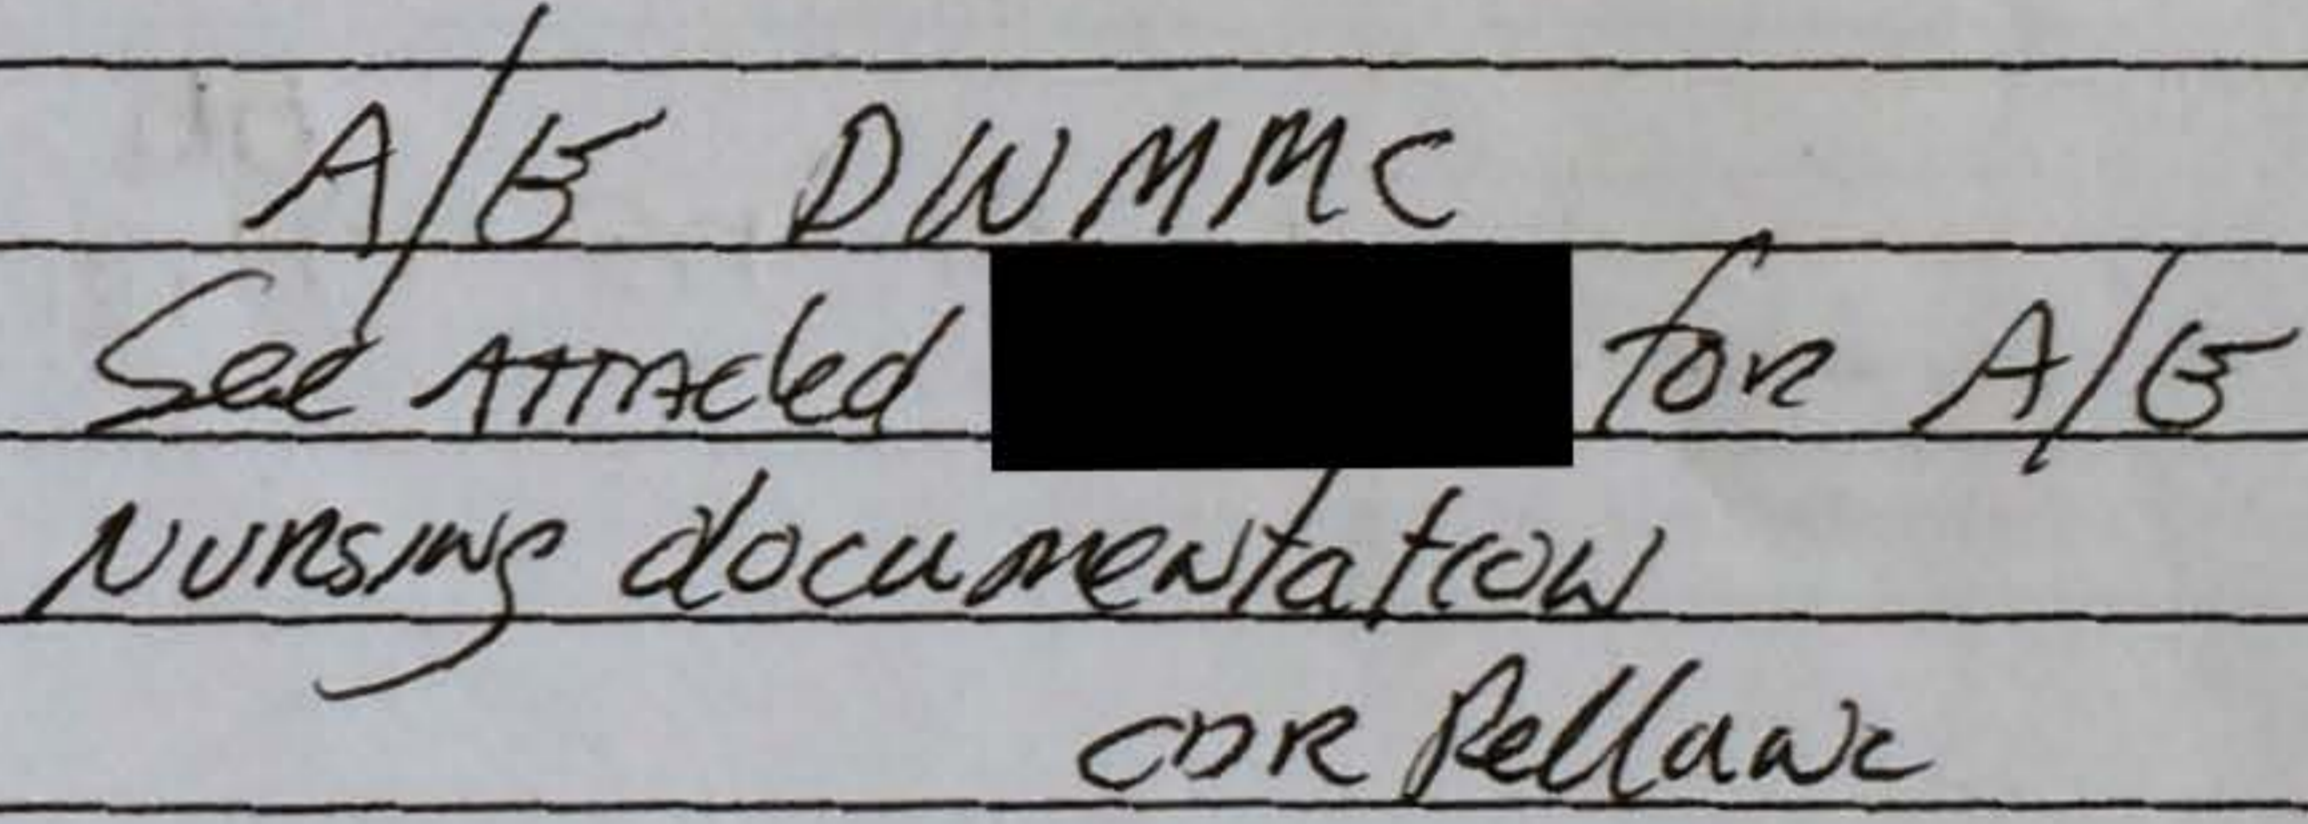 A/E DWMMC
See Attached for A/E
Nursing documentation
CDR Pellani